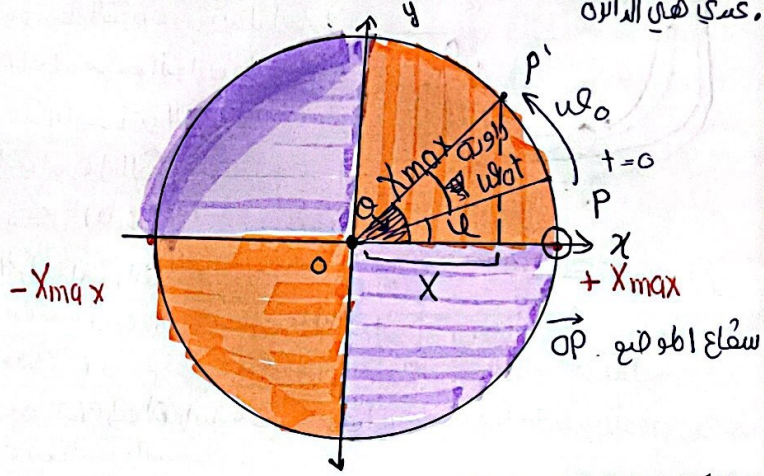 . عندي هي الدائرة
y
P'
ω0
t=0
Xmax
زاوية
ω0t
θ
φ
P
O
x
X
-Xmax
+ Xmax
OP
شعاع الموضع